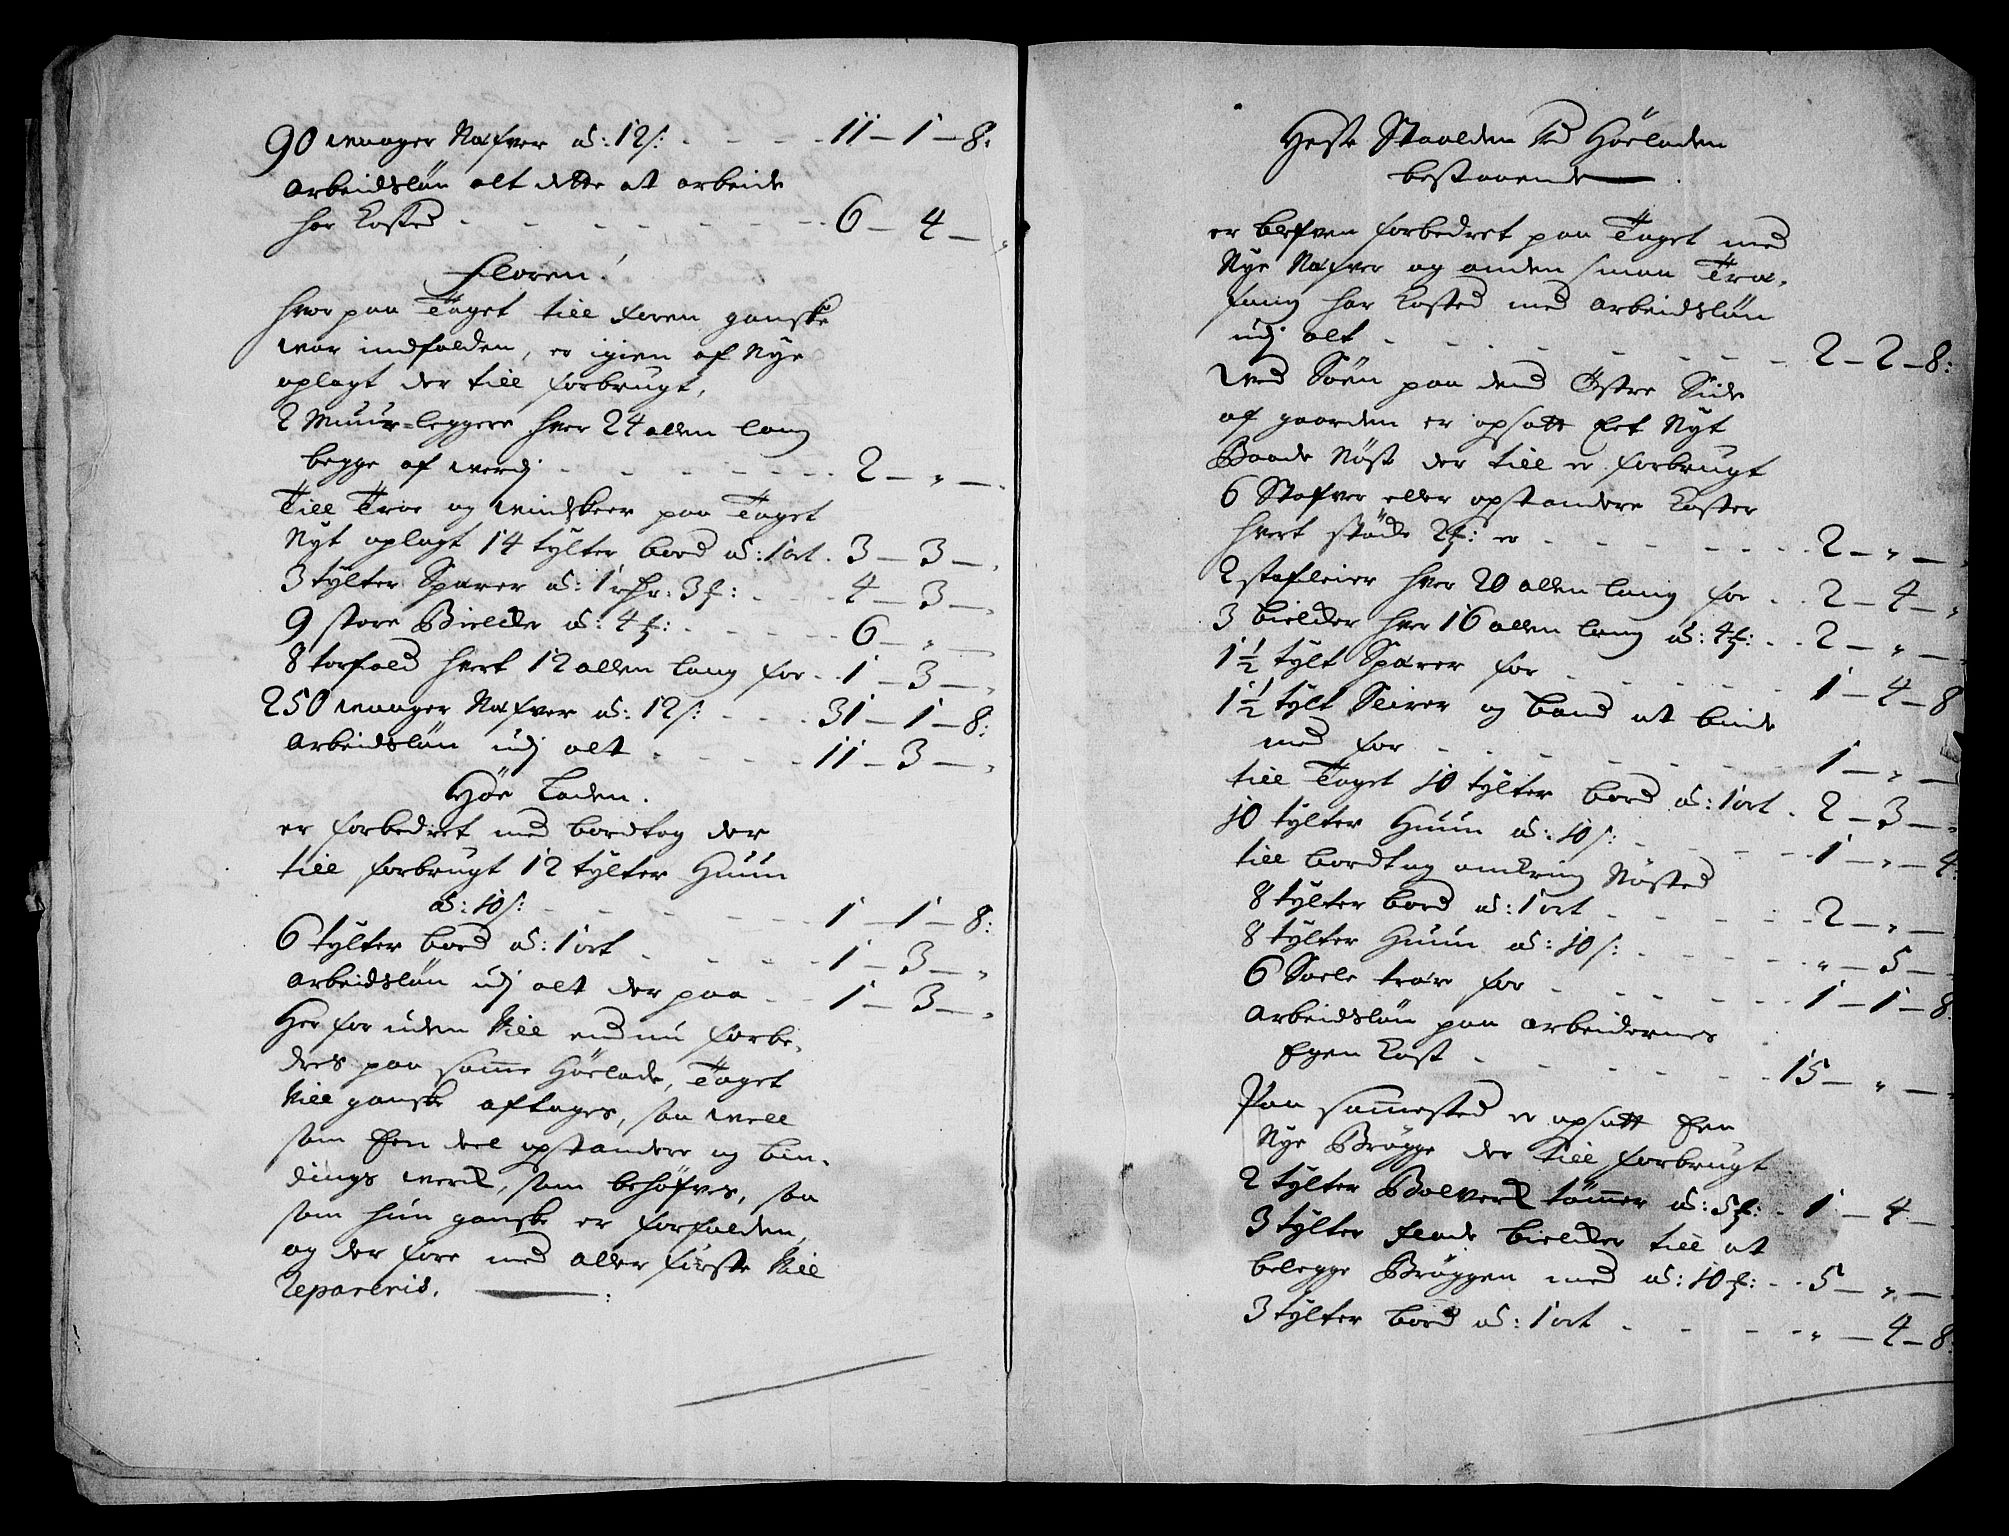 90 waager Næfver á: 12 s: - - - - 11 – 1 – 8:
arbeidslön alt dette at arbeide
har kosted - - - - - - - - 6 – 4 –
Floren!
hvor paa Taget till foren ganske
war indfalden, er igien af Nye
oplagt der till forbrugt,
2 Muur-leggere hver 24 allen lang
begge af werdj - - - - - - - - 2 – " –
Till Troe og windskeer paa Taget
Nyt oplagt 14 tylter bord á: 1 ort. 3 – 3 –
3 tylter Sparer á: 1 rdr. 3 ₻: - - - - 4 – 3 –
9 store Bielcker á: 4 ₻: - - - - - - 6 – " –
8 torfald hvert 12 allen lang for - - 1 – 3 – "
250 waager Næfver á: 12 s: - - - - 31 – 1 – 8:
arbeidslön udj alt - - - - - - 11 – 3 – "
Höe Laden.
er forbedret med bordtag der
till forbrugt 12 tylter Huun
á: 10 s: - - - - - - - - 1 – 1 – 8:
6 tylter bord á: 1 ort - - - - - 1 – 3 – "
arbeidslön udj alt der paa - - - 1 – 3 – "
Her for uden Vill end nu forbe-
dres paa samme Höelade, Taget
Vill ganske aftages, saa well
som Een deel opstandere og bin-
dings werck, som behöfves, saa
som hun ganske er forfalden,
og der fore med aller förste Vill
Repareris. :
Heste Staalden Ved Höeladen
bestaaende .
er blefven forbedret paa Taget med
Nye Næfver og anden smaa Træ-
fang har kosted med arbeidslön
udj alt - - - - - - - - - 2 – 2 – 8:
Wed Söen paa dend Östre Side
af gaarden er opsatt Eet Nyt
Baade Nöst der till er forbrugt
6 Stafver eller opstandere koster
hvert stöcke 2 ₻: er - - - - - - - 2 – " –
2 stafleier hver 20 allen lang for - - 2 – 4 – "
3 bielcker hver 16 allen lang á: 4 ₻: - - 2 – " –
1½ tylt Sparer for - - - - - - - 1 – 4 – 8
1½ tylt Slirer og band at binde
med for - - - - - - - - 1 – " –
till Taget 10 tylter bord á: 1 ort - 2 – 3 – "
10 tylter Huun á: 10 s: - - - - - 1 – " – 4
till bordtag omkring Nösted
8 tylter bord á: 1 ort - - - - - - 2 – " –
8 tylter Huun á: 10 s: - - - - - - " – 5 –
6 Soele træer for - - - - - - - 1 – 1 – 8
Arbeidslön paa arbeidernes
Egen kost - - - - - - - - 15 – " –
Paa sammested er opsatt Een
Nye Brögge der till forbrugt
2 tylter Bolverck tömmer á: 5 ₻: - 1 – 4 –
3 tylter flade bielcker till at
belegge Bröggen med á: 10 ₻: - - 5 – " –
3 tylter bord á: 1 ort - - - - - - " – 4 – 8: